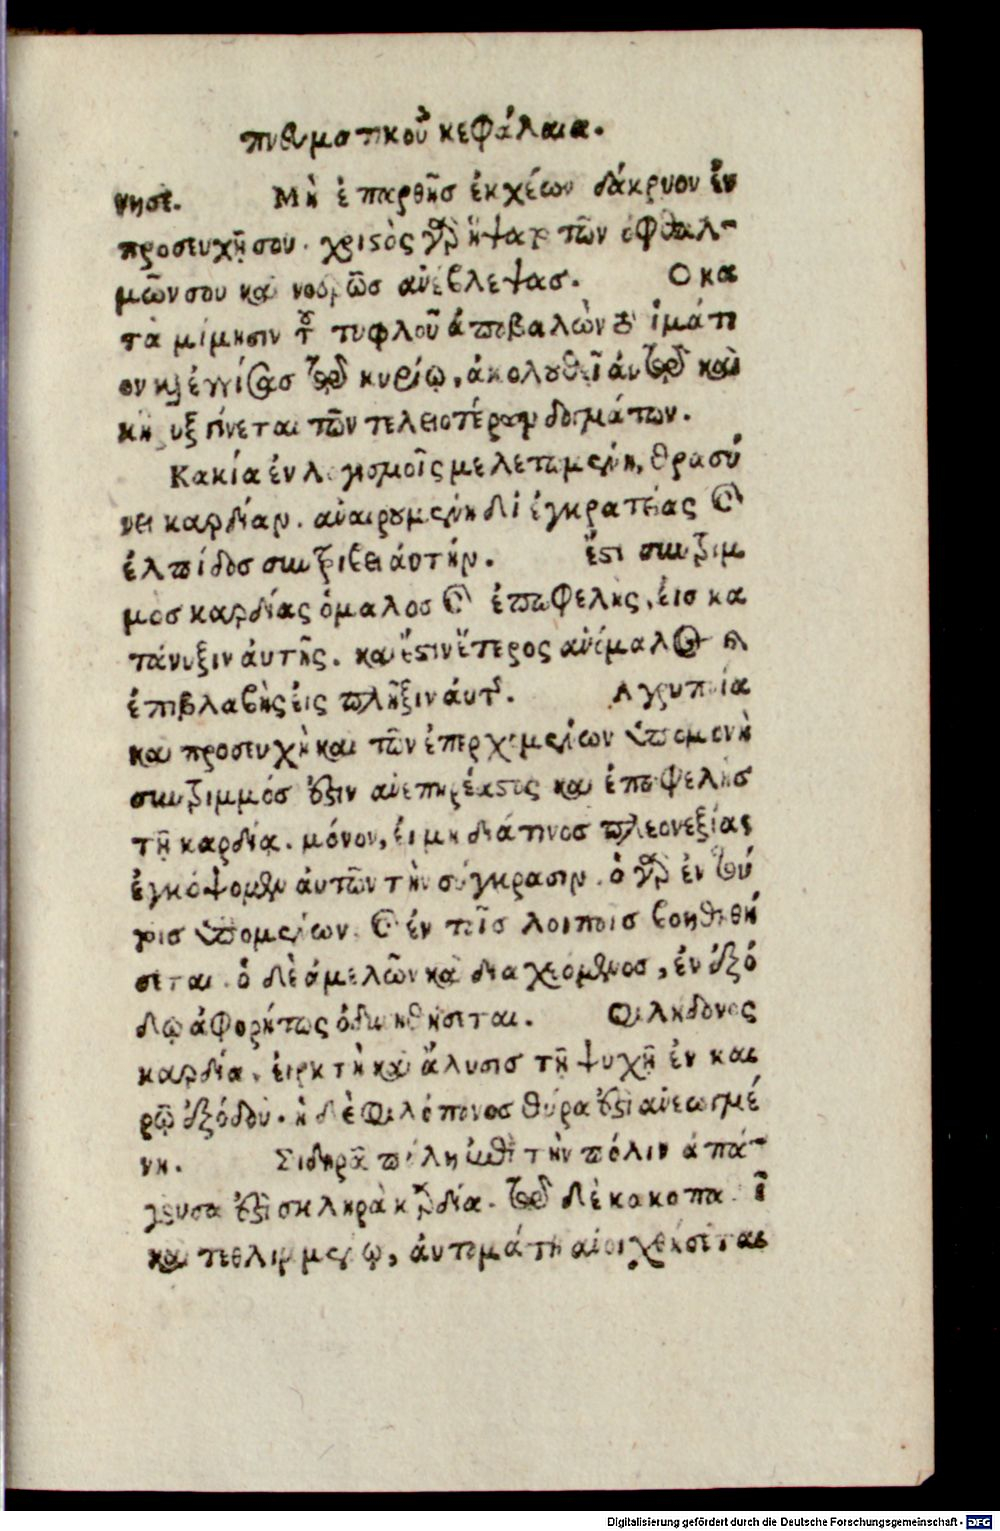 πνευματικοῦ κεφάλαια.
νησε. Μὴ ἐπαρθῆσ ἐκχέων δάκρυον ἐν
προσευχῇ σου. χριστὸς γὰρ ἥψατο τῶν ὀφθαλ-
μῶν σου καὶ νοερῶσ ἀνέβλεψασ. Ο κα
τὰ μίμησιν τοῦ τυφλοῦ ἀποβαλὼν τὸ ἱμάτι
ον καὶ ἐγγίσασ τῶ κυρίῳ, ἀκολουθεῖ ἀυτῶ καὶ
κήρυξ γίνεται τῶν τελειοτέρων δογμάτων.
Κακία ἐν λογισμοῖς μελετωμένη, θρασύ
νει καρδίαν. ἀναιρουμένη δι ἐγκρατείας καὶ
ἐλπίδοσ συντρίβει ἀυτήν. ἔστι συντριμ
μὸσ καρδίας ὁμαλοσ καὶ ἐπωφελὴς, ἐισ κα
τάνυξιν ἀυτῆς. καὶ ἔστιν ἕτερος ἀνώμαλος καὶ
ἐπιβλαβὴς ἐις πλῆξιν ἀυτῆς. Αγρυπνία
καὶ προσευχὴ καὶ τῶν ἐπερχομένων ὑπομονὴ
συντριμμόσ ἐστιν ἀνεπηρέαστος καὶ ἐπωφελὴσ
τῇ καρδίᾳ. μόνον, ἐι μὴ διά τινοσ πλεονεξίας
ἐγκόψομεν ἀυτῶν τὴν σύγκρασιν. ὁ γὰρ ἐν τού
τοισ ὑπομένων καὶ ἐν τοῖσ λοιποῖσ βοηθηθή
σεται. ὁ δὲ ἀμελῶν καὶ διαχεόμενοσ, ἐν ἐξό
δῳ ἀφορήτως ὀδυνηθήσεται. Φιλήδονος
καρδία, ἑιρκτὴ καὶ ἅλυσισ τῇ ψυχῇ ἐν και
ρῷ ἐξόδου. ἡ δὲ φιλόπονοσ θύρα ἐστὶ ἀνεωγμέ
νη. Σιδηρᾶ πύλη ἐπὶ τὴν πόλιν ἀπά-
γουσα ἐστὶ σκληρὰ καρδία. τῶ δὲ κακοπα
καὶ τεθλιμμένῳ, ἀυτομάτη ἀνοιχθήσεται
Digitalisierung gefördert durch die Deutsche Forschungsgemeinschaft - DFG